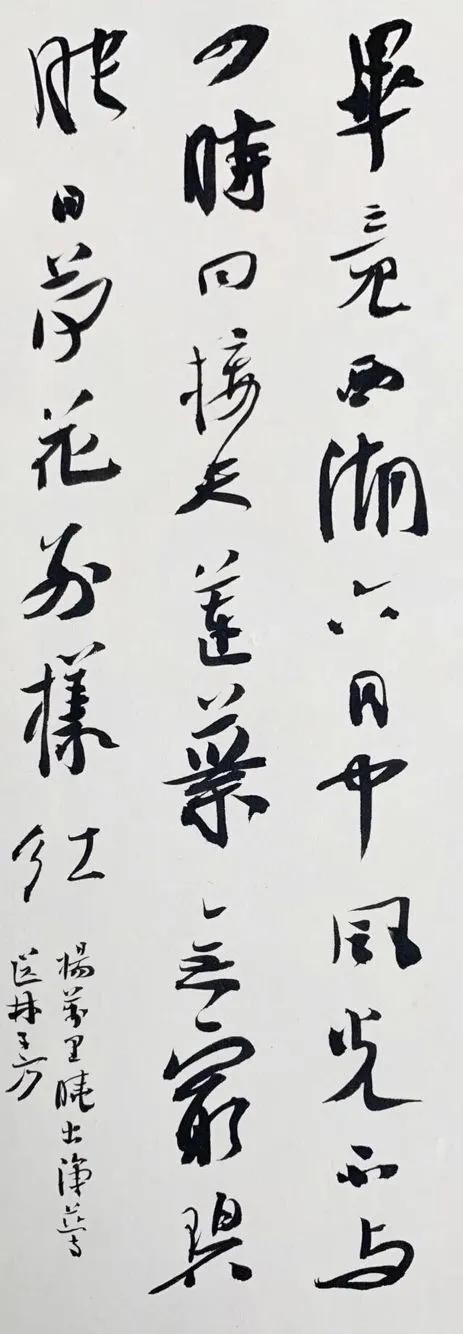 畢竟西湖六月中風光不与
四時同接天蓮葉無窮碧
映日荷花别樣红
楊萬里曉出淨慈寺
送林子方